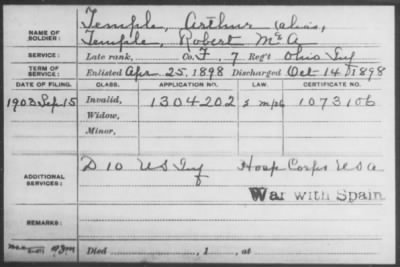 Temple, Arthur (alias,
NAME OF SOLDIER: Temple, Robert McA
SERVICE: Late rank, Co. F, 7 Reg't Ohio Inf
TERM OF SERVICE: Enlisted Apr 25, 1898 Discharged Oct 14, 1898
DATE OF FILING. CLASS. APPLICATION NO. LAW. CERTIFICATE NO.
1903 Sep 15 Invalid, 1304202 1073106
Widow,
Minor,
ADDITIONAL SERVICES: D 10 US Inf Hosp Corps USA
War with Spain
REMARKS:
Died , 1 , at